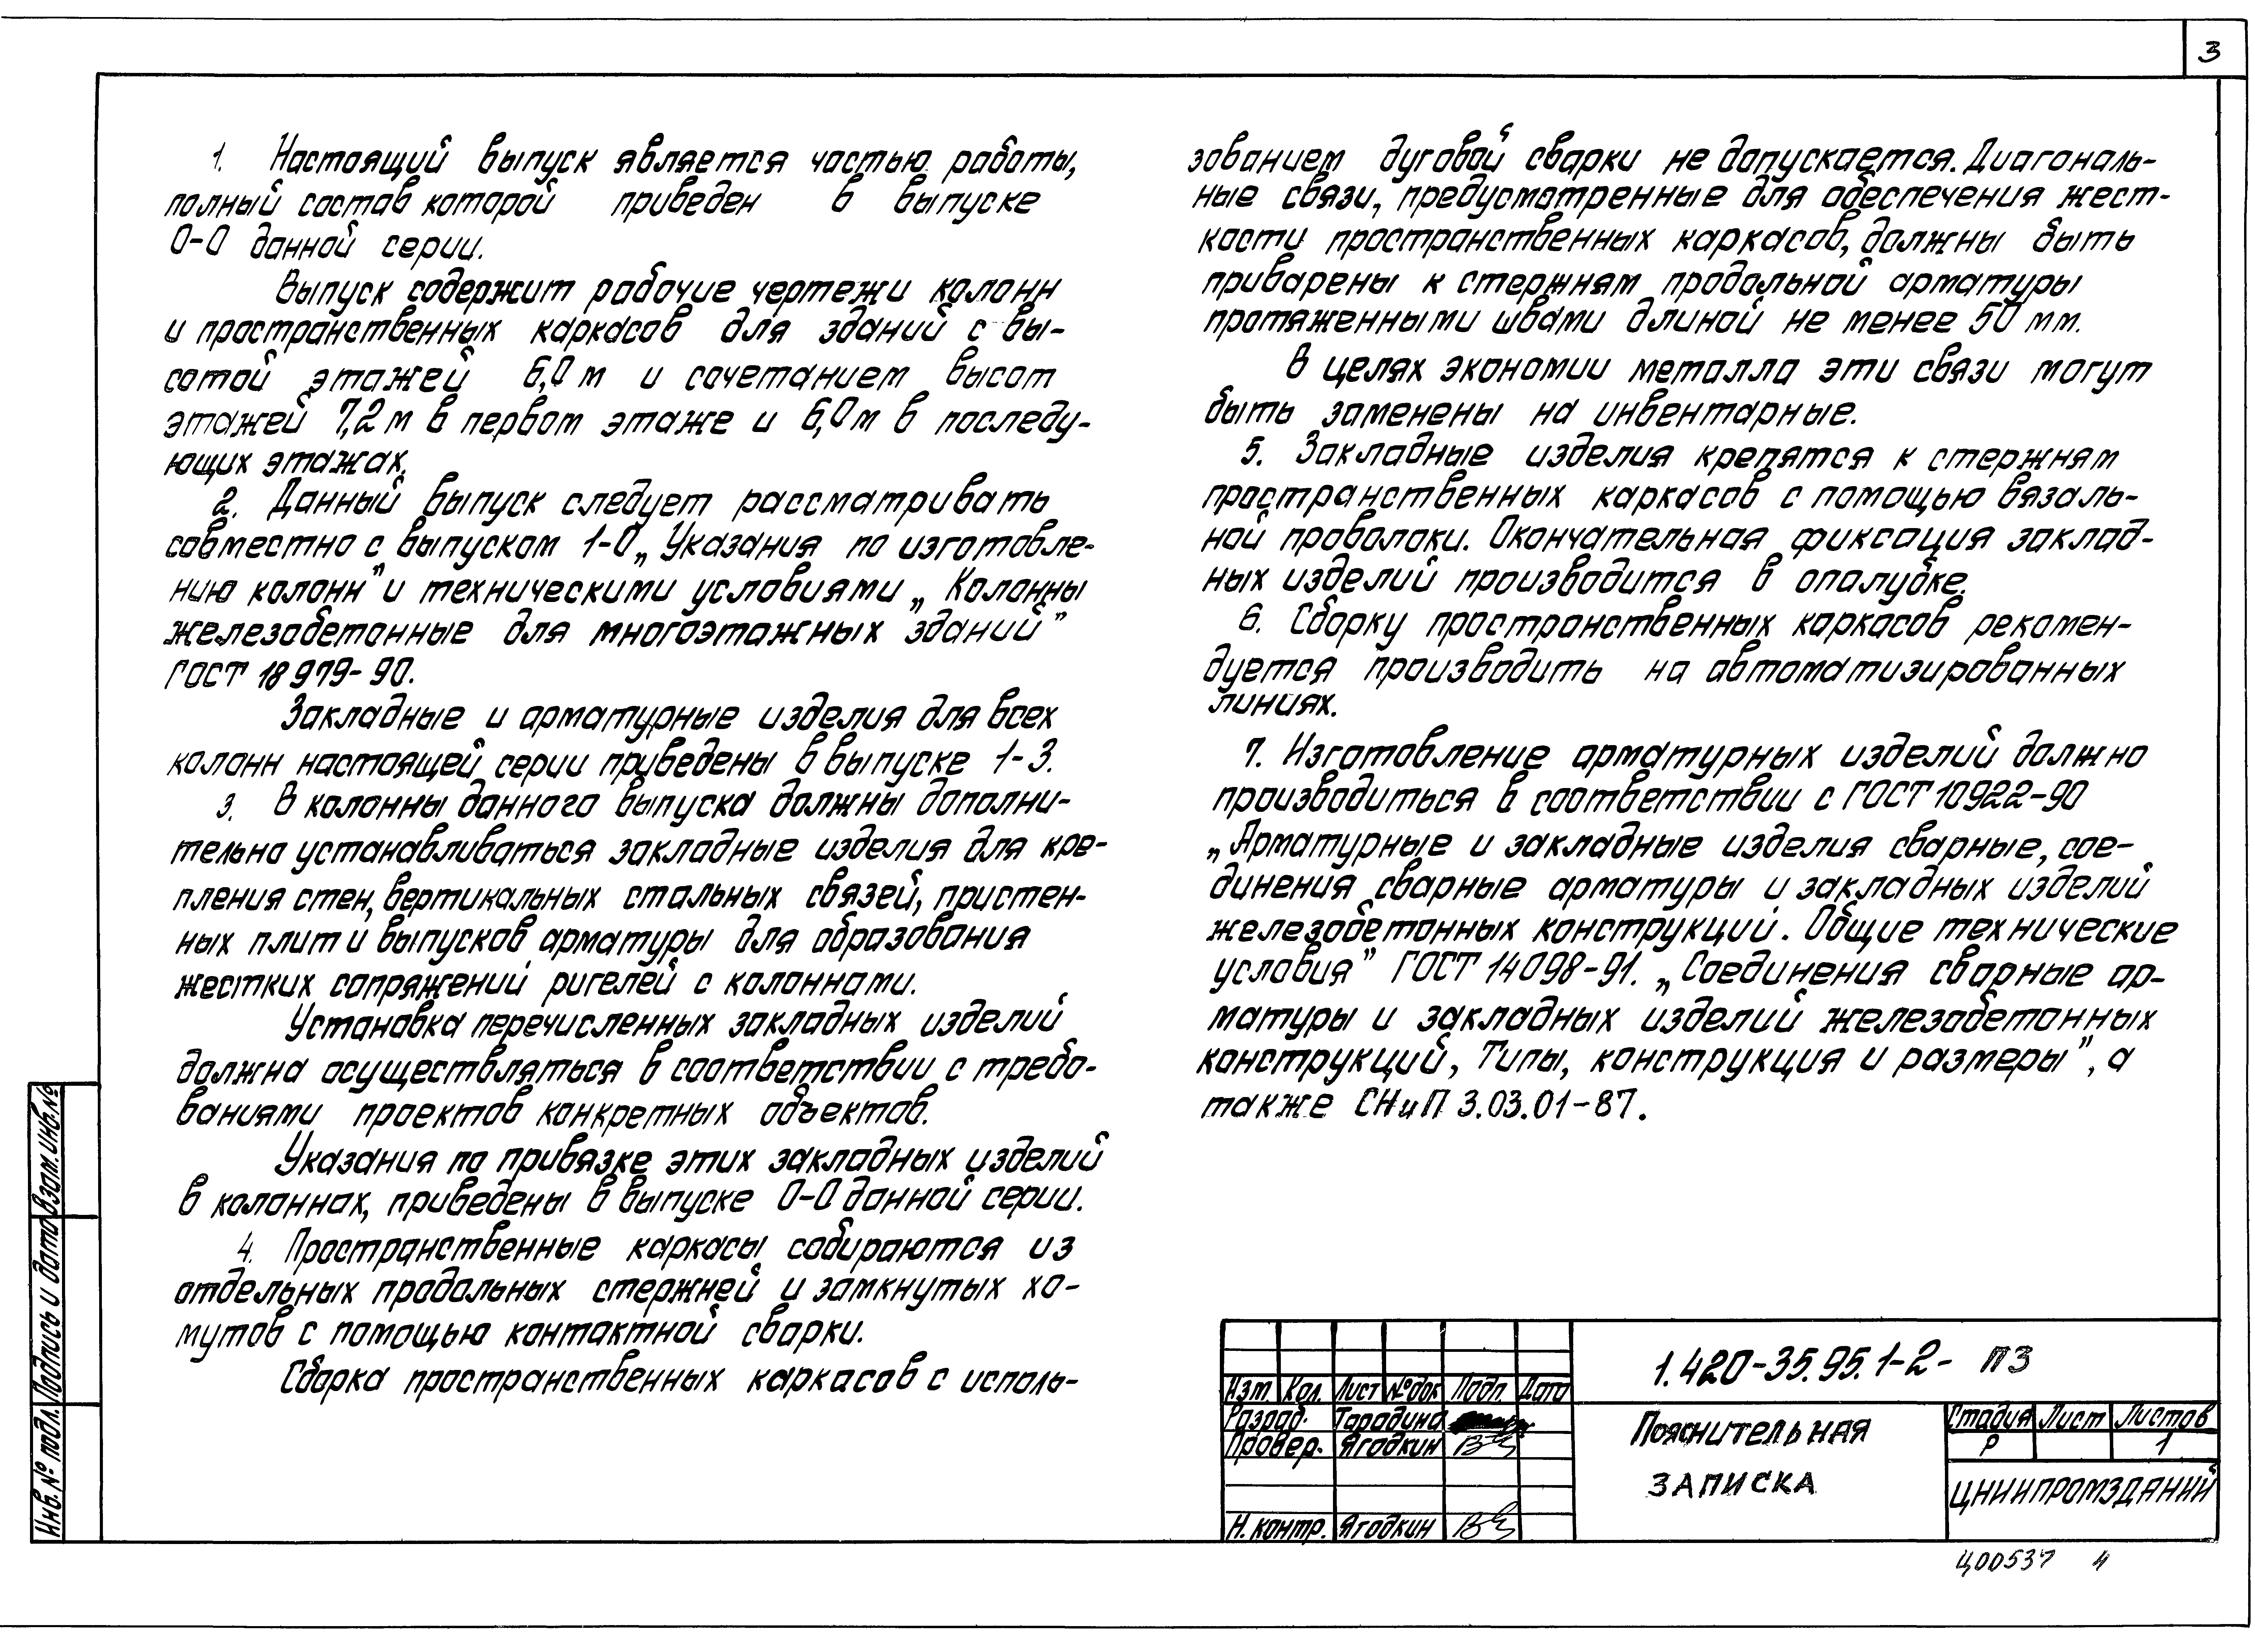 3
1. Настоящий выпуск является частью работы,
полный состав которой приведен в выпуске
0-0 данной серии.
Выпуск содержит рабочие чертежи колонн
и пространственных каркасов для зданий с вы-
сотой этажей 6,0 м и сочетанием высот
этажей 7,2 м в первом этаже и 6,0 м в последу-
ющих этажах.
2. Данный выпуск следует рассматривать
совместно с выпуском 1-0 „Указания по изготовле-
нию колонн" и техническими условиями „Колонны
железобетонные для многоэтажных зданий"
ГОСТ 18979-90.
Закладные и арматурные изделия для всех
колонн настоящей серии приведены в выпуске 1-3.
3. В колонны данного выпуска должны дополни-
тельно устанавливаться закладные изделия для кре-
пления стен, вертикальных стальных связей, пристен-
ных плит и выпусков арматуры для образования
жестких сопряжений ригелей с колоннами.
Установка перечисленных закладных изделий
должна осуществляться в соответствии с требо-
ваниями проектов конкретных объектов.
Указания по привязке этих закладных изделий
в колоннах, приведены в выпуске 0-0 данной серии.
4. Пространственные каркасы собираются из
отдельных продольных стержней и замкнутых хо-
мутов с помощью контактной сварки.
Сборка пространственных каркасов с исполь-
зованием дуговой сварки не допускается. Диагональ-
ные связи, предусмотренные для обеспечения жест-
кости пространственных каркасов, должны быть
приварены к стержням продольной арматуры
протяженными швами длиной не менее 50 мм.
В целях экономии металла эти связи могут
быть заменены на инвентарные.
5. Закладные изделия крепятся к стержням
пространственных каркасов с помощью вязаль-
ной проволоки. Окончательная фиксация заклад-
ных изделий производится в опалубке.
6. Сборку пространственных каркасов рекомен-
дуется производить на автоматизированных
линиях.
7. Изготовление арматурных изделий должно
производиться в соответствии с ГОСТ 10922-90
„Арматурные и закладные изделия сварные, сое-
динения сварные арматуры и закладных изделий
железобетонных конструкций. Общие технические
условия" ГОСТ 14098-91. „Соединения сварные ар-
матуры и закладных изделий железобетонных
конструкций, Типы, конструкция и размеры", а
также СНиП 3.03.01-87.
Взам. инв. №
Подпись и дата
Инв. № подл.
1.420-35.95.1-2- ПЗ
Изм. Кол. Лист №док Подп. Дата
Разраб. Тарадина
Провер. Ягодкин
Н. контр. Ягодкин
Пояснительная
записка
Стадия Лист Листов
Р 1
ЦНИИПРОМЗДАНИЙ
Ц00537 4